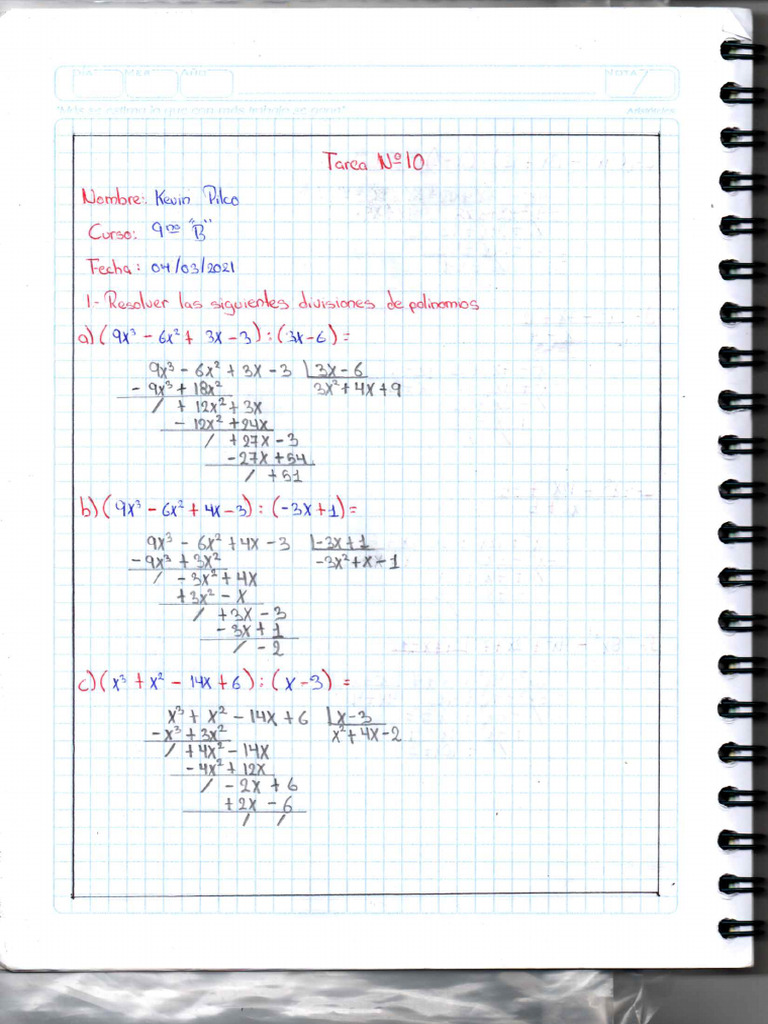 DIA MES AÑO NOTA
Tarea Nº 10
Nombre: Kevin Pilco
Curso: 9no "B"
Fecha: 04/03/2021
1- Resolver las siguientes divisiones de polinomios
a) (9x³ - 6x² + 3x - 3) : (3x - 6) =
9x³ - 6x² + 3x - 3 |3x - 6
- 9x³ + 18x² 3x² + 4x + 9
/ + 12x² + 3x
- 12x² + 24x
/ + 27x - 3
- 27x + 54
/ + 51
b) (9x³ - 6x² + 4x - 3) : (-3x + 1) =
9x³ - 6x² + 4x - 3 |-3x + 1
- 9x³ + 3x² -3x² + x - 1
/ - 3x² + 4x
+ 3x² - x
/ + 3x - 3
- 3x + 1
/ - 2
c) (x³ + x² - 14x + 6) : (x - 3) =
x³ + x² - 14x + 6 |x - 3
- x³ + 3x² x² + 4x - 2
/ + 4x² - 14x
- 4x² + 12x
/ - 2x + 6
+ 2x - 6
/ /